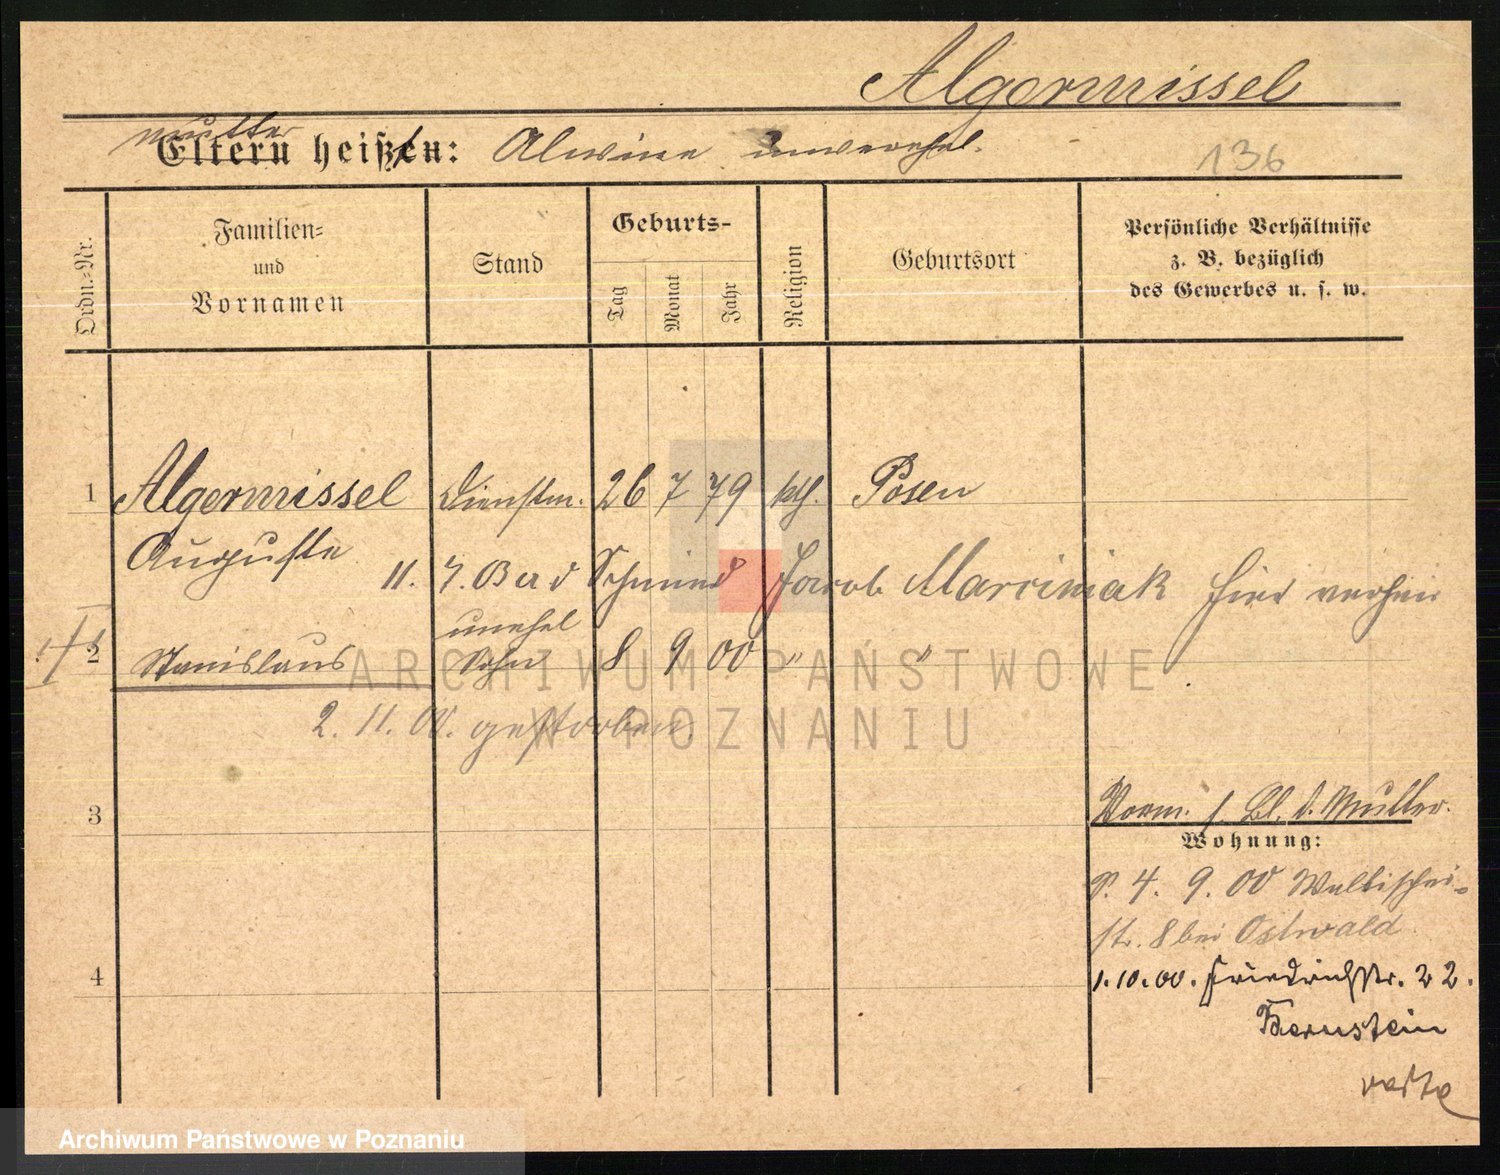 Algermissel
Mutter
Eltern heißen: Alwine unverehel.
136
Ordn.-Nr.
Familien-
und
Vornamen
Stand
Geburts-
Tag
Monat
Jahr
Religion
Geburtsort
Persönliche Verhältnisse
z. B. bezüglich
des Gewerbes u. s. w.
1 Algermissel Dienstm. 26 7 79 kth. Posen
Auguste
11. 7. Schmied Jacob Marciniak hier
unehel
2 Stanislaus Sohn 8 9 00 " "
ARCHIWUM PAŃSTWOWE
W POZNANIU
2. 11. 00. gestorben.
3
Vorm. s. Bl. d. Mutter.
Wohnung:
4. 9. 00 Wallischei-
str. 8 bei Ostwald
4
1. 10. 00. Friedrichstr. 22.
Bernstein
Archiwum Państwowe w Poznaniu